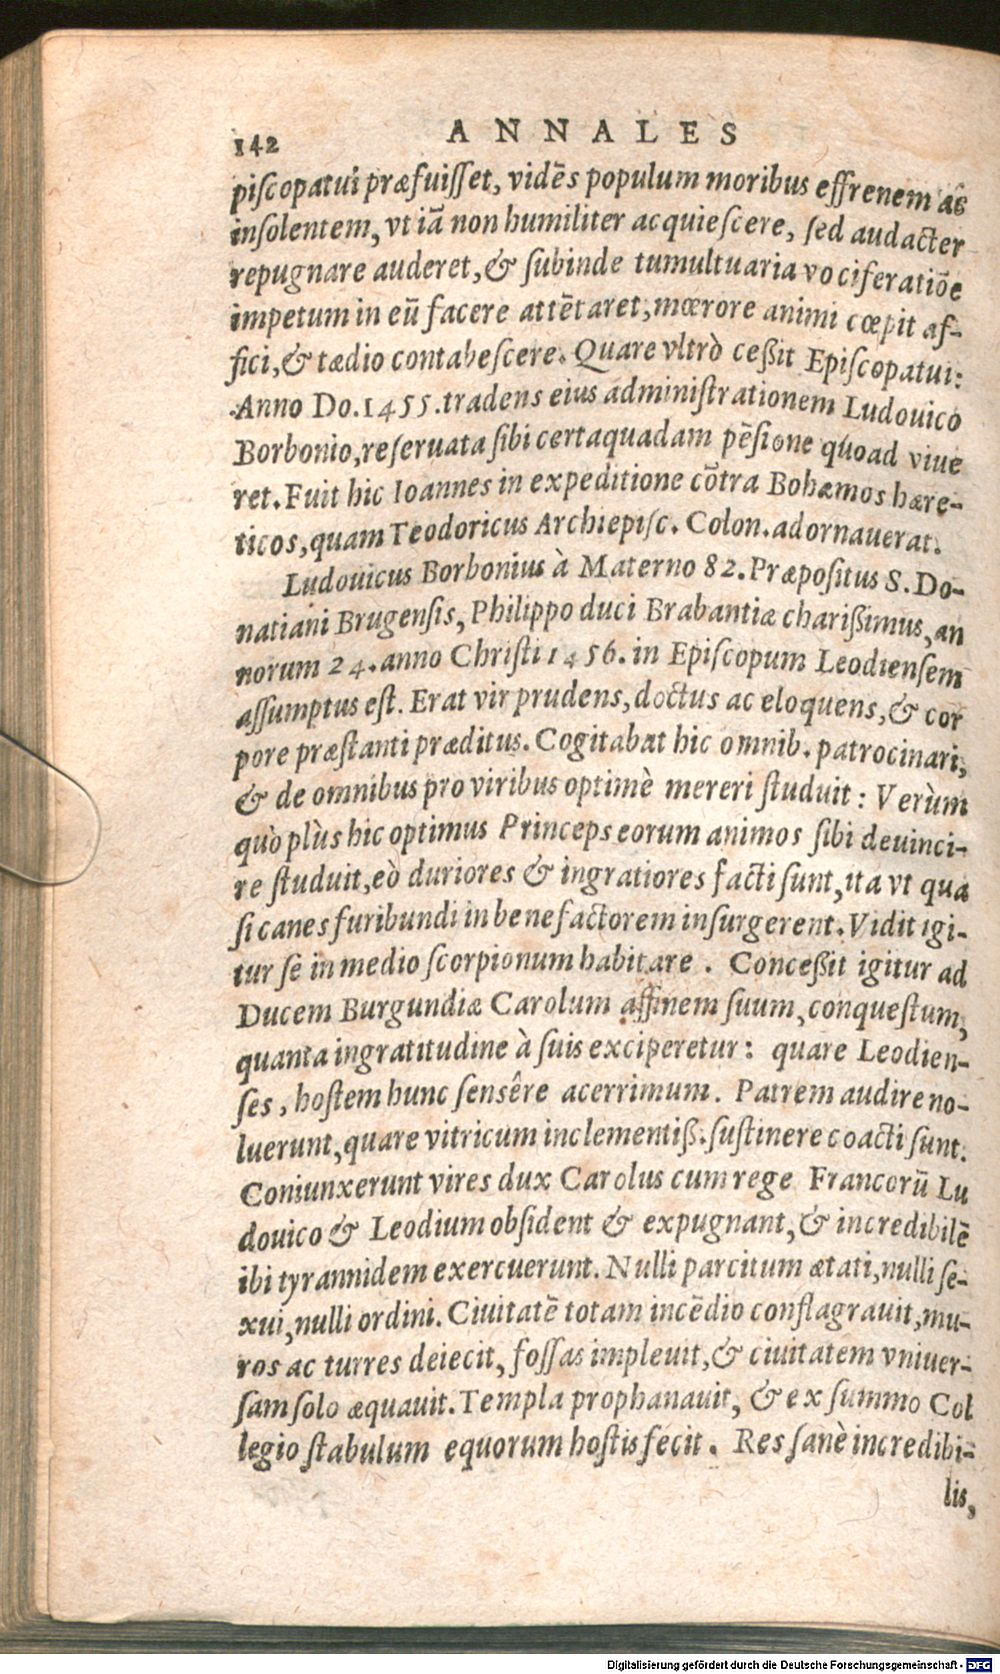 142 ANNALES
piſcopatui præfuiſſet, vidēs populum moribus effrenem ac
inſolentem, vt iā non humiliter acquieſcere, ſed audacter
repugnare auderet, & ſubinde tumultuaria vociferatiōe
impetum in eū facere attētaret, mœrore animi cœpit af-
fici, & tædio contabeſcere. Quare vltrò ceßit Epiſcopatui:
Anno Do. 1455. tradens eius adminiſtrationem Ludouico
Borbonio, reſeruata ſibi certa quadam pēſione quoad viue
ret. Fuit hic Ioannes in expeditione cōtra Bohæmos hære-
ticos, quam Teodoricus Archiepiſc. Colon. adornauerat.
Ludouicus Borbonius à Materno 82. Præpoſitus S. Do-
natiani Brugenſis, Philippo duci Brabantiæ charißimus, an
norum 24. anno Chriſti 1456. in Epiſcopum Leodienſem
aſſumptus eſt. Erat vir prudens, doctus ac eloquens, & cor
pore præſtanti præditus. Cogitabat hic omnib. patrocinari,
& de omnibus pro viribus optimè mereri ſtuduit: Verùm
quò plùs hic optimus Princeps eorum animos ſibi deuinci-
re ſtuduit, eò duriores & ingratiores facti ſunt, ita vt qua
ſi canes furibundi in benefactorem inſurgerent. Vidit igi-
tur ſe in medio ſcorpionum habitare. Conceßit igitur ad
Ducem Burgundiæ Carolum affinem ſuum, conqueſtum,
quanta ingratitudine à ſuis exciperetur: quare Leodien-
ſes, hoſtem hunc ſensêre acerrimum. Patrem audire no-
luerunt, quare vitricum inclementiß. ſuſtinere coacti ſunt.
Coniunxerunt vires dux Carolus cum rege Francorū Lu
douico & Leodium obſident & expugnant, & incredibilē
ibi tyrannidem exercuerunt. Nulli parcitum ætati, nulli ſe-
xui, nulli ordini. Ciuitatē totam incēdio conflagrauit, mu-
ros ac turres deiecit, foſſas impleuit, & ciuitatem vniuer-
ſam ſolo æquauit. Templa prophanauit, & ex ſummo Col
legio ſtabulum equorum hoſtis fecit. Res ſanè incredibi-
lis,
Digitalisierung gefördert durch die Deutsche Forschungsgemeinschaft - DFG